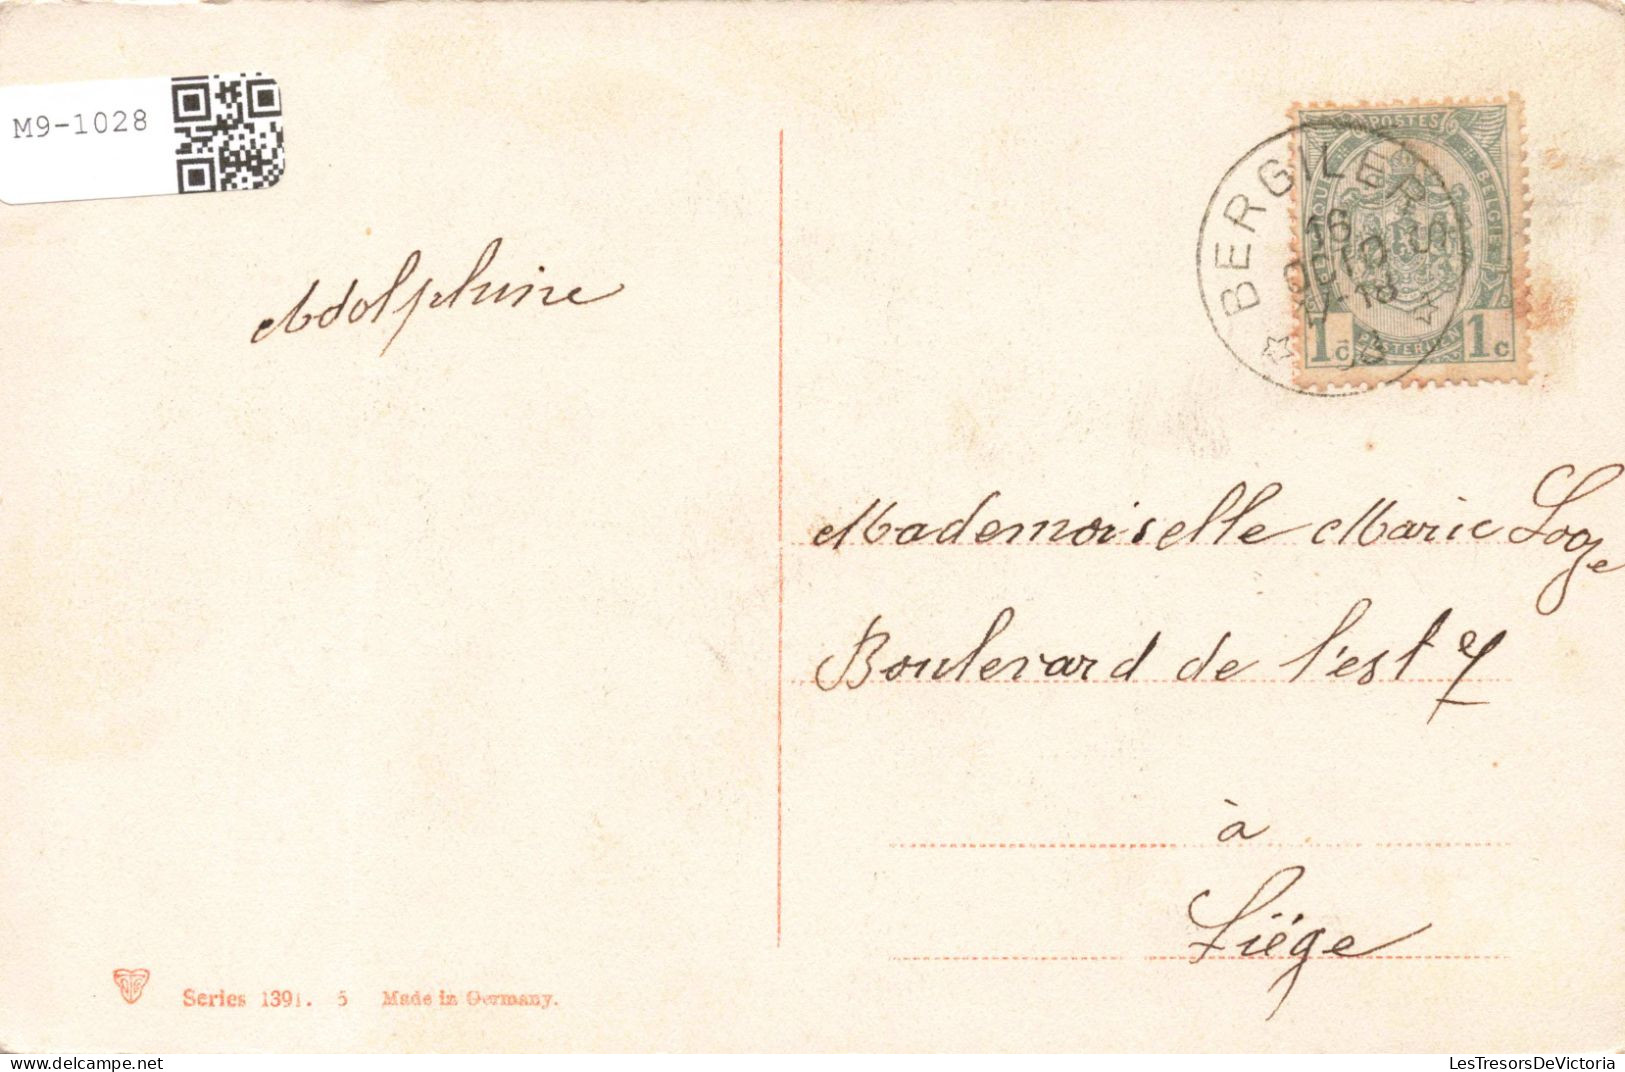 M9-1028
POSTES
BERGILERS
16
17-18
1 c
POSTERIJEN
1 c
Adolphine
Mademoiselle Marie Loge
Boulevard de l'est 7
à
Liége
Series 1391. 5 Made in Germany.
LesTresorsDeVictoria
delcampe.net